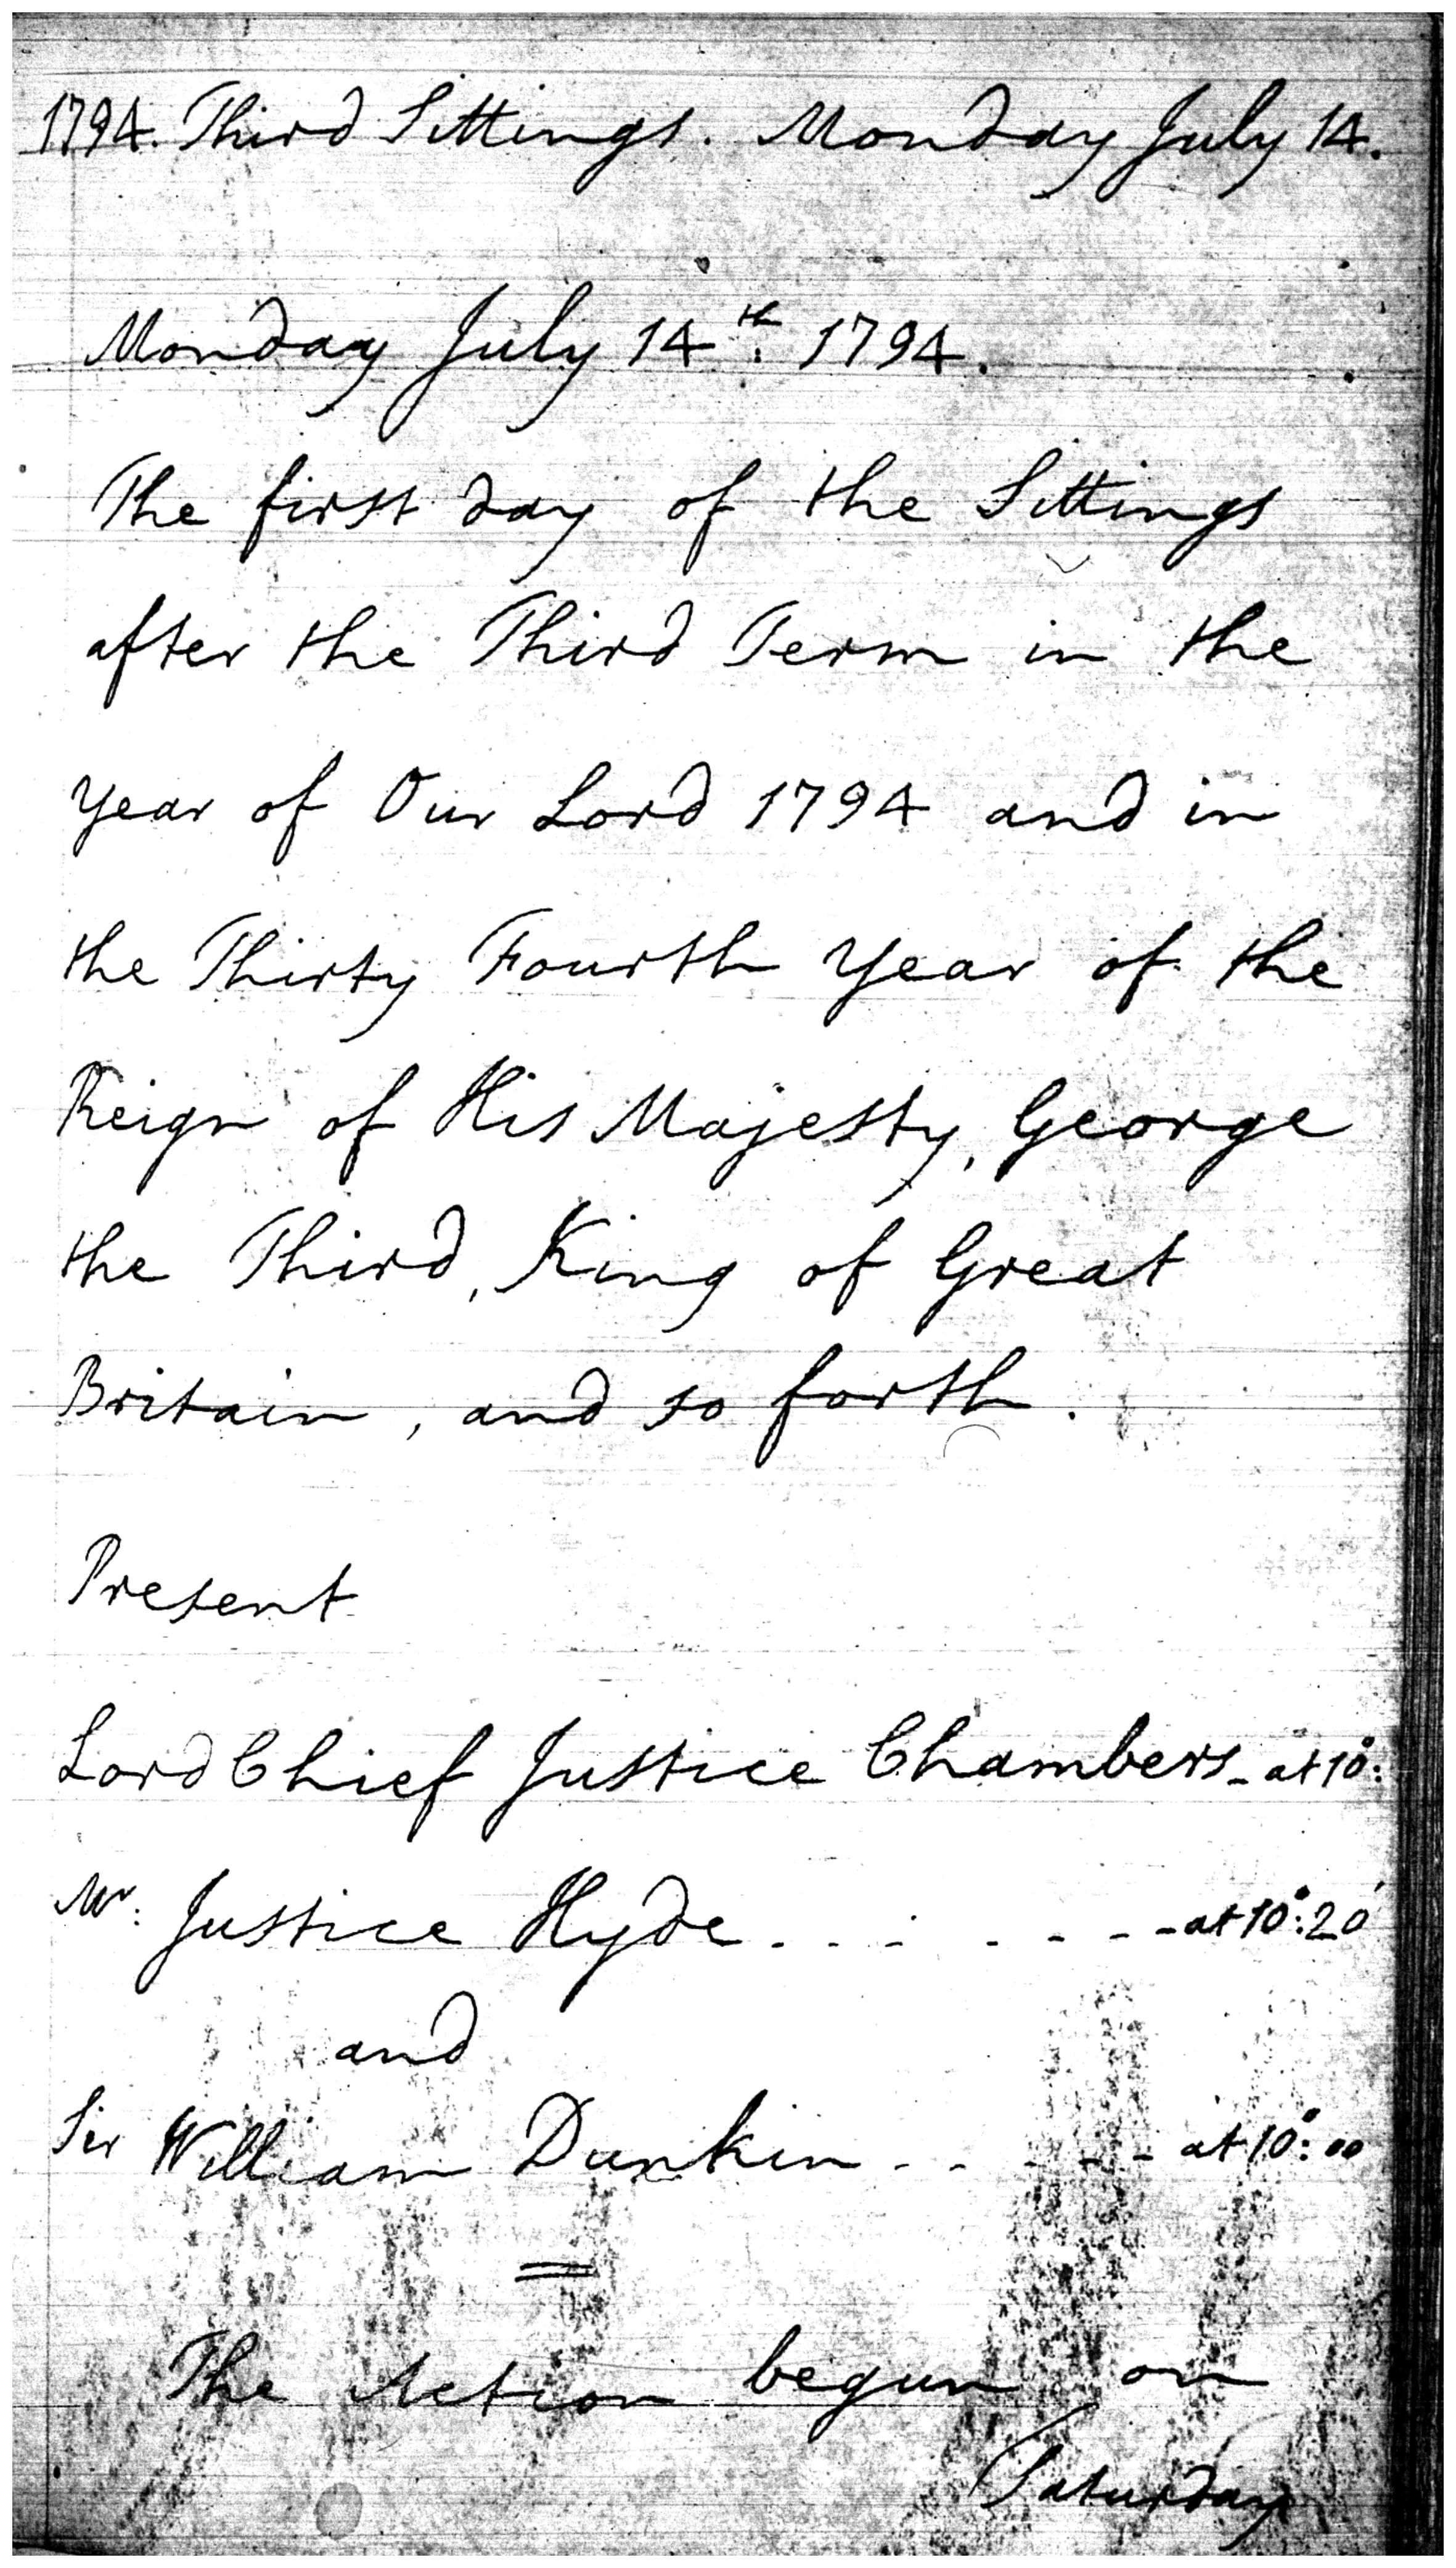 1794. Third Sittings. Monday July 14.
Monday July 14th: 1794.
The first day of the Sittings
after the Third Term in the
year of Our Lord 1794 and in
the Thirty Fourth Year of the
Reign of His Majesty, George
the Third, King of Great
Britain, and so forth.
Present
Lord Chief Justice Chambers - at 10°:
Mr: Justice Hyde - - - - - - - at 10°: 20'
and
Sir William Dunkin - - - - - at 10°: 00
=
The Action begun on
Saturday